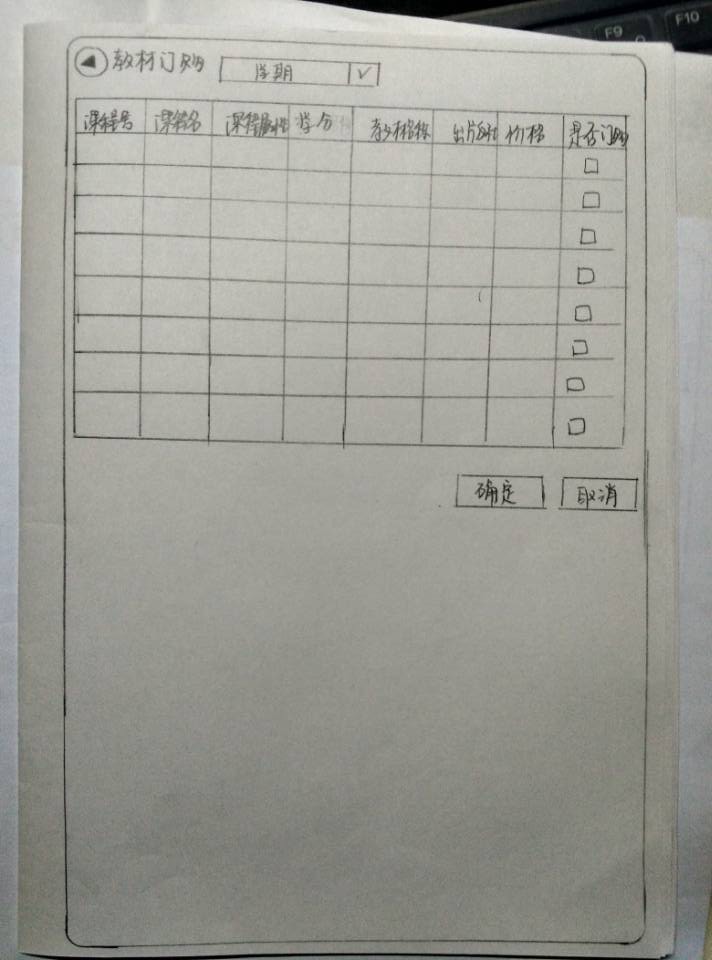 F9
F10
教材订购 学期
课程号 课程名 课程属性 学分 教材名称 出版社 价格 是否订购
确定 取消